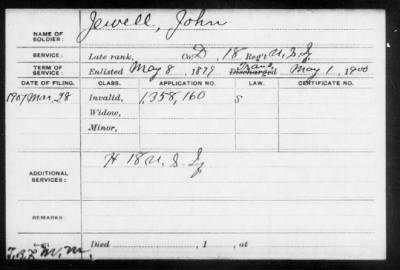 NAME OF SOLDIER: Jewell, John
SERVICE: Late rank, Co. D, 18 Reg't U.S. Inf
TERM OF SERVICE: Enlisted May 8, 1899 Discharged Trans May 1, 1900
DATE OF FILING. CLASS. APPLICATION NO. LAW. CERTIFICATE NO.
1907 Mar, 28 Invalid, 1,358,160 S
Widow,
Minor,
ADDITIONAL SERVICES: H 18 U.S. Inf
REMARKS:
Died , 1 , at